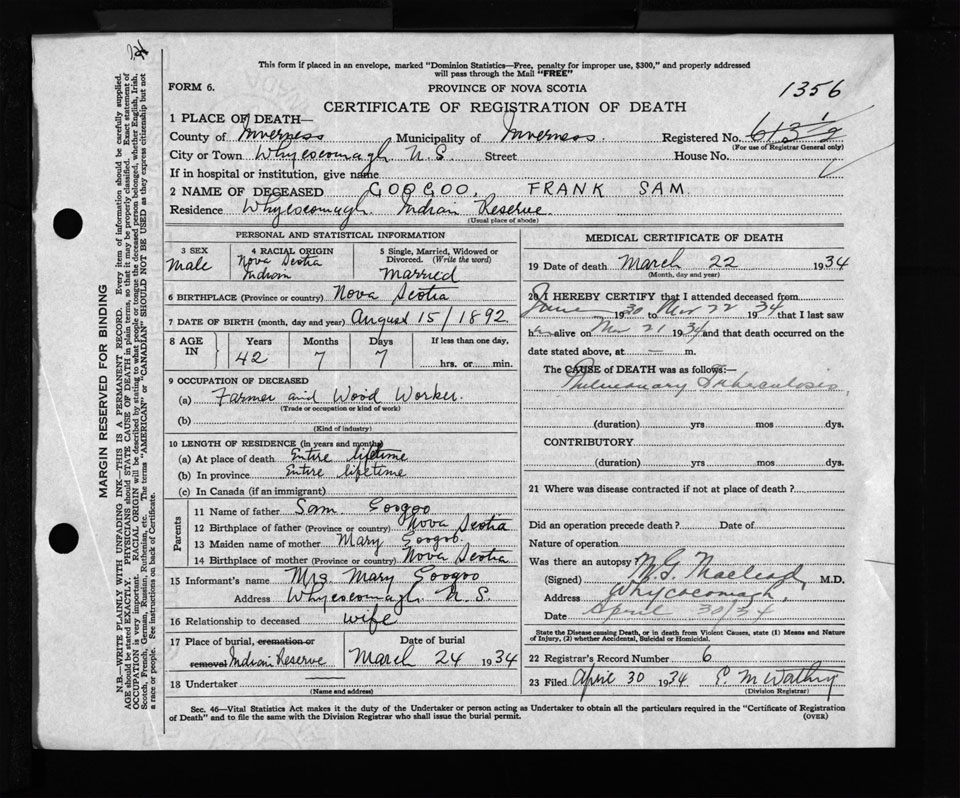 This form if placed in an envelope, marked "Dominion Statistics—Free, penalty for improper use, $300," and properly addressed
will pass through the Mail "FREE"
FORM 6.
PROVINCE OF NOVA SCOTIA
1356
CERTIFICATE OF REGISTRATION OF DEATH
1 PLACE OF DEATH—
County of Inverness Municipality of Inverness. Registered No. 613 1/2
(For use of Registrar General only)
City or Town Whycocomagh N.S. Street House No.
If in hospital or institution, give name
2 NAME OF DECEASED GOOGOO, FRANK SAM.
Residence Whycocomagh Indian Reserve.
(Usual place of abode)
PERSONAL AND STATISTICAL INFORMATION
3 SEX
Male
4 RACIAL ORIGIN
Nova Scotia
Indian
5 Single, Married, Widowed or
Divorced. (Write the word)
Married
6 BIRTHPLACE (Province or country) Nova Scotia
7 DATE OF BIRTH (month, day and year) August 15/1892.
8 AGE
IN
Years
42
Months
7
Days
7
If less than one day,
hrs. or min.
9 OCCUPATION OF DECEASED
(a) Farmer and Wood Worker.
(Trade or occupation or kind of work)
(b)
(Kind of industry)
10 LENGTH OF RESIDENCE (in years and months)
(a) At place of death Entire lifetime
(b) In province Entire lifetime
(c) In Canada (if an immigrant)
Parents
11 Name of father Sam. Googoo
12 Birthplace of father (Province or country) Nova Scotia
13 Maiden name of mother Mary Googoo.
14 Birthplace of mother (Province or country) Nova Scotia
15 Informant's name Mrs. Mary Googoo
Address Whycocomagh N.S.
16 Relationship to deceased wife
17 Place of burial, cremation or
removal Indian Reserve
Date of burial
March 24 1934
18 Undertaker
(Name and address)
MEDICAL CERTIFICATE OF DEATH
19 Date of death March 22 1934
(Month, day and year)
20 I HEREBY CERTIFY that I attended deceased from
1930 to Mar 22 1934 that I last saw
h alive on Mar 21 1934 and that death occurred on the
date stated above, at — m.
The CAUSE of DEATH was as follows:—
Pulmonary Tuberculosis
(duration) yrs mos dys.
CONTRIBUTORY
(duration) yrs mos dys.
21 Where was disease contracted if not at place of death?
Did an operation precede death? Date of
Nature of operation
Was there an autopsy?
(Signed) M.G. Macleod, M.D.
Address Whycocomagh,
Date April 30/34
State the Disease causing Death, or in death from Violent Causes, state (1) Means and Nature
of Injury, (2) whether Accidental, Suicidal or Homicidal.
22 Registrar's Record Number 6
23 Filed April 30 1934
(Division Registrar)
Sec. 46—Vital Statistics Act makes it the duty of the Undertaker or person acting as Undertaker to obtain all the particulars required in the "Certificate of Registration
of Death" and to file the same with the Division Registrar who shall issue the burial permit.
(OVER)
MARGIN RESERVED FOR BINDING
N.B.—WRITE PLAINLY WITH UNFADING INK—THIS IS A PERMANENT RECORD. Every item of information should be carefully supplied.
AGE should be stated EXACTLY. PHYSICIANS should STATE CAUSE OF DEATH in plain terms, so that it may be properly classified. Exact statement of
OCCUPATION is very important. RACIAL ORIGIN will be described by stating to what people or tongue the deceased person belonged, whether English, Irish,
Scotch, French, German, Russian, Ruthenian, etc. The terms "AMERICAN" or "CANADIAN" SHOULD NOT BE USED as they express citizenship but not
a race or people. See instructions on back of Certificate.